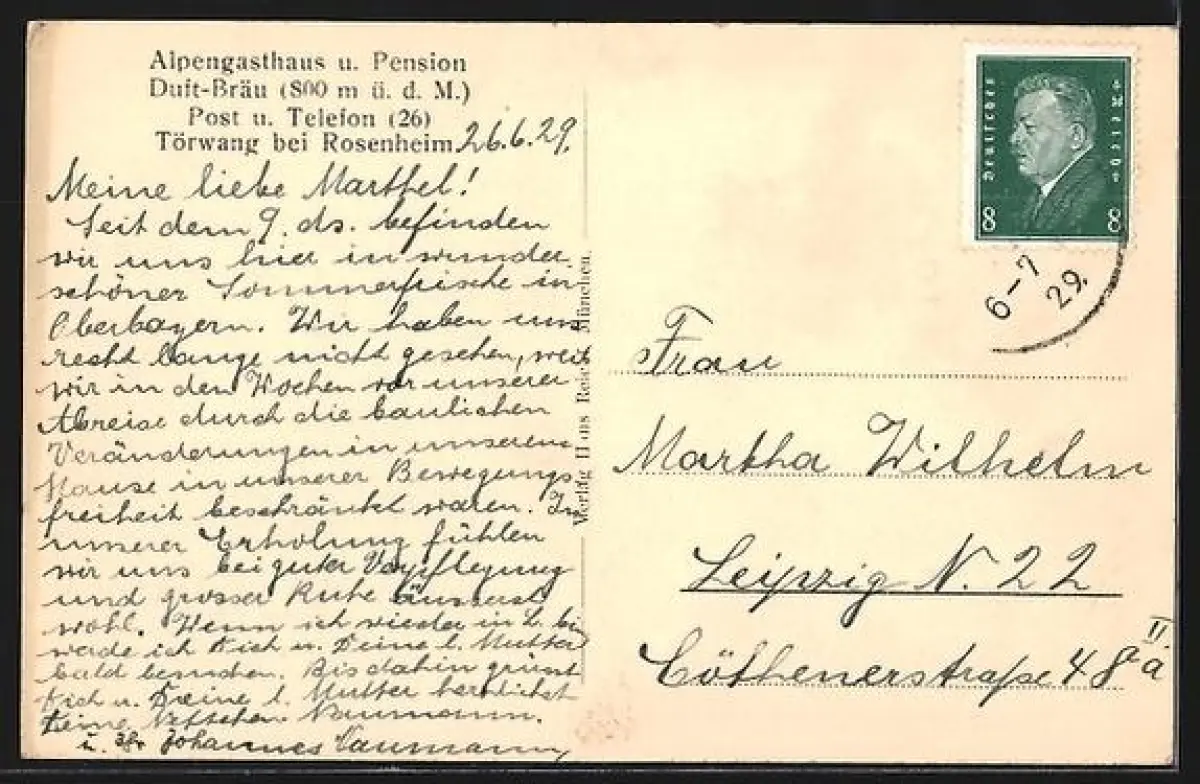 Alpengasthaus u. Pension
Duft-Bräu (800 m ü. d. M.)
Post u. Telefon (26)
Törwang bei Rosenheim
26.6.29.
Meine liebe Marthel!
Seit dem 9. ds. befinden
wir uns hier in wunder
schöner Sommerfrische in
Oberbayern. Wir haben uns
recht lange nicht gesehen, weil
wir in den Wochen vor unserer
Abreise durch die baulichen
Veränderungen in unserem
Hause in unserer Bewegungs
freiheit beschränkt waren. In
unserer Erholung fühlen
wir uns bei guter Verpflegung
und grosser Ruhe äusserst
wohl. Wenn ich wieder in L. bin
werde ich Dich u. Deine l. Mutter
bald besuchen. Bis dahin grüsst
Dich u. Deine l. Mutter herzlichst
Deine Naumann.
u. Johannes Naumann,
Verlag Hans Reie München.
Deutsches Reich
8 8
6-7
29.
Frau
Martha Wilhelm
Leipzig N. 22
Cöthenerstraße 48 II